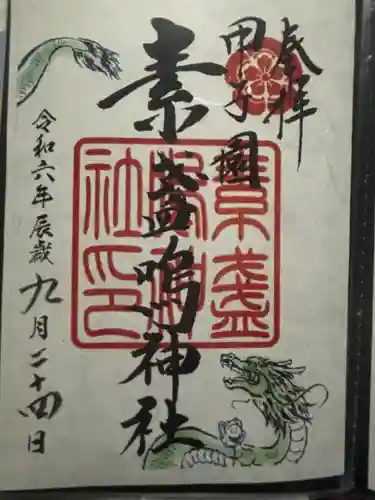 奉拝
甲子園
素盞嗚神社
素盞嗚神社印
令和六年辰歳九月二十四日